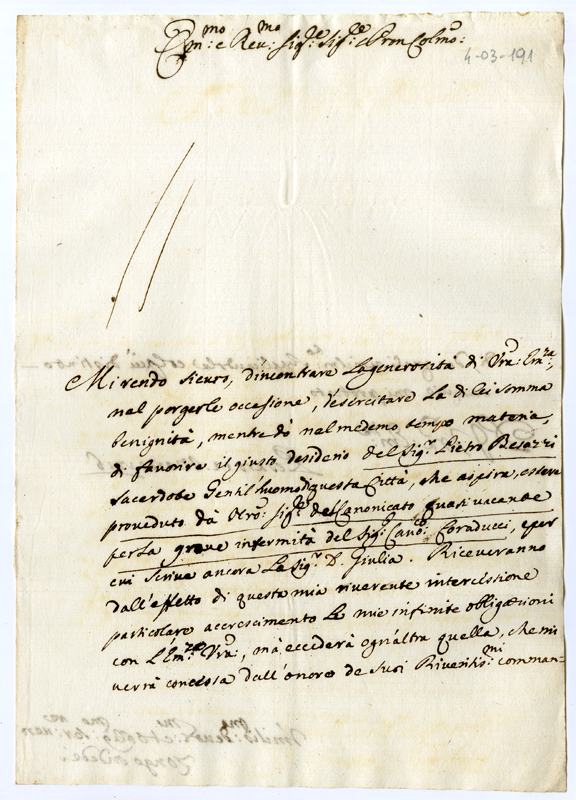 Em:mo e Reu:mo Sig:re Sig:re e Pron Colmo:
4-03-191
Mi rendo sicuro, d'incontrare la generosità di Vra: Em:za,
nel porgerle occasione, d'esercitare la di lei somma
benignità, mentre dò nel medemo tempo materia,
di favorire il giusto desiderio del Sig:r Pietro Besozzi
Sacerdote Gentil'huomo di questa Città, che aspira, essere
proveduto dà Nro: Sig:re del Canonicato quasi vacante
per la grave infermità del Sig: Can:co Coraducci, e per
cui scrive ancora la Sig:r D. Giulia. Riceveranno
dall'effetto di questa mia riverente intercessione
particolare accrescimento le mie infinite obligazioni
con l'Em:za Vra:, mà eccederà ogn'altra quella, che mi
verrà concessa dall'onore de suoi Riveritis:mi comman=